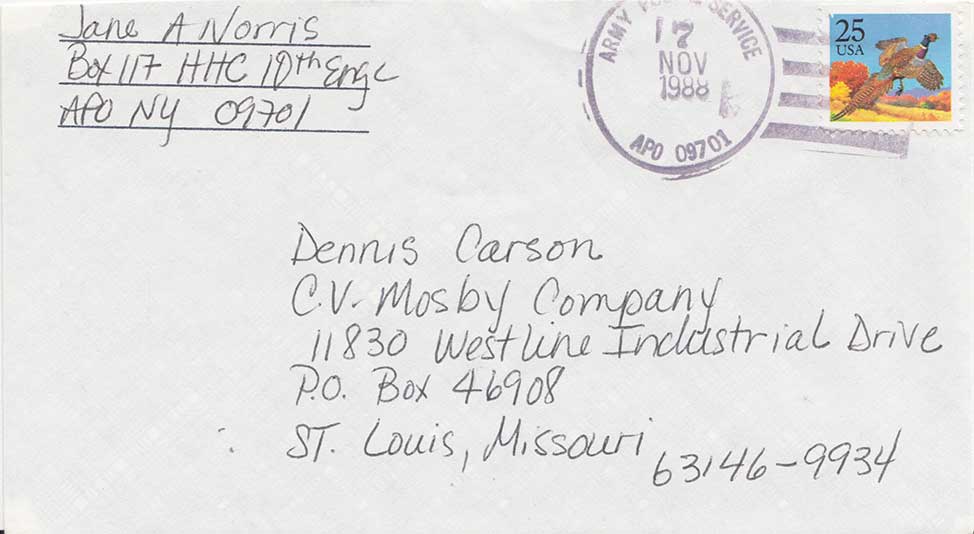 Jane A Norris
Box 117 HHC 10th Eng
APO NY 09701
ARMY SERVICE
7
NOV
1988
APO 09701
25
USA
Dennis Carson
C.V. Mosby Company
11830 Westline Industrial Drive
P.O. Box 46908
ST. Louis, Missouri
63146-9934